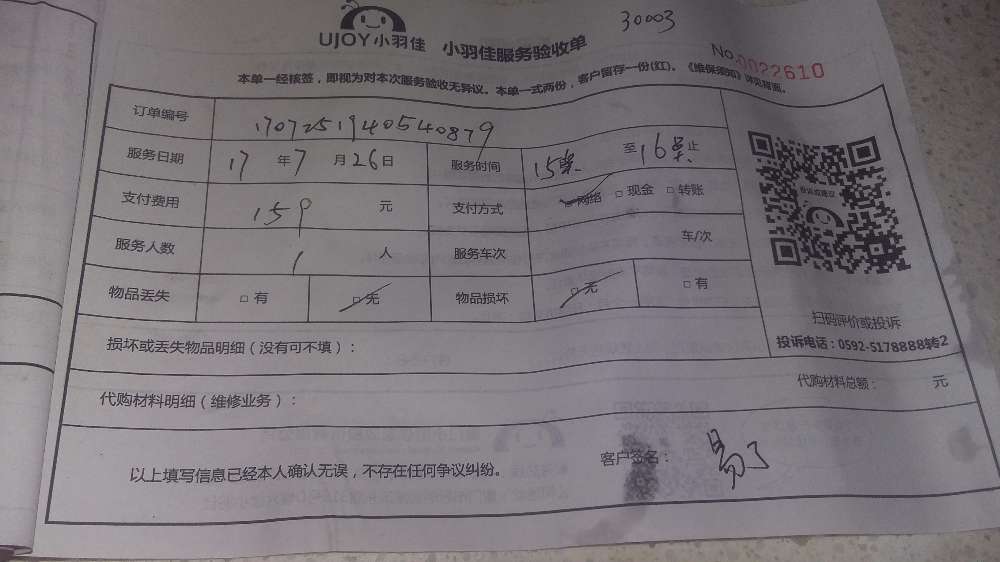 30003
UJOY小羽佳 小羽佳服务验收单
No.0022610
本单一经核签，即视为对本次服务验收无异议。本单一式两份，客户留存一份(红)。《维保须知》详见背面。
订单编号 1707251940540879
服务日期 17 年 7 月 26 日 服务时间 15 至 16 止
支付费用 159 元 支付方式 □网络 □现金 □转账
服务人数 1 人 服务车次 车/次
物品丢失 □有 □无 物品损坏 □无 □有
投诉或建议
扫码评价或投诉
投诉电话：0592-5178888转2
损坏或丢失物品明细（没有可不填）：
代购材料明细（维修业务）： 代购材料总额： 元
以上填写信息已经本人确认无误，不存在任何争议纠纷。 客户签名：